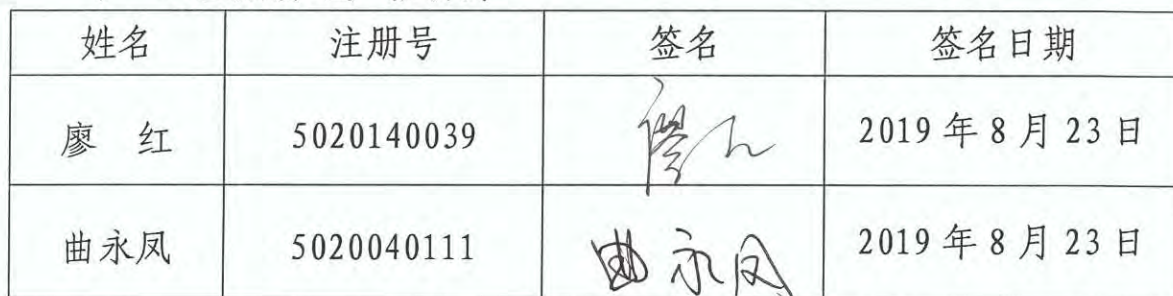 姓名 注册号 签名 签名日期
廖 红 5020140039 2019年8月23日
曲永凤 5020040111 曲永凤 2019年8月23日